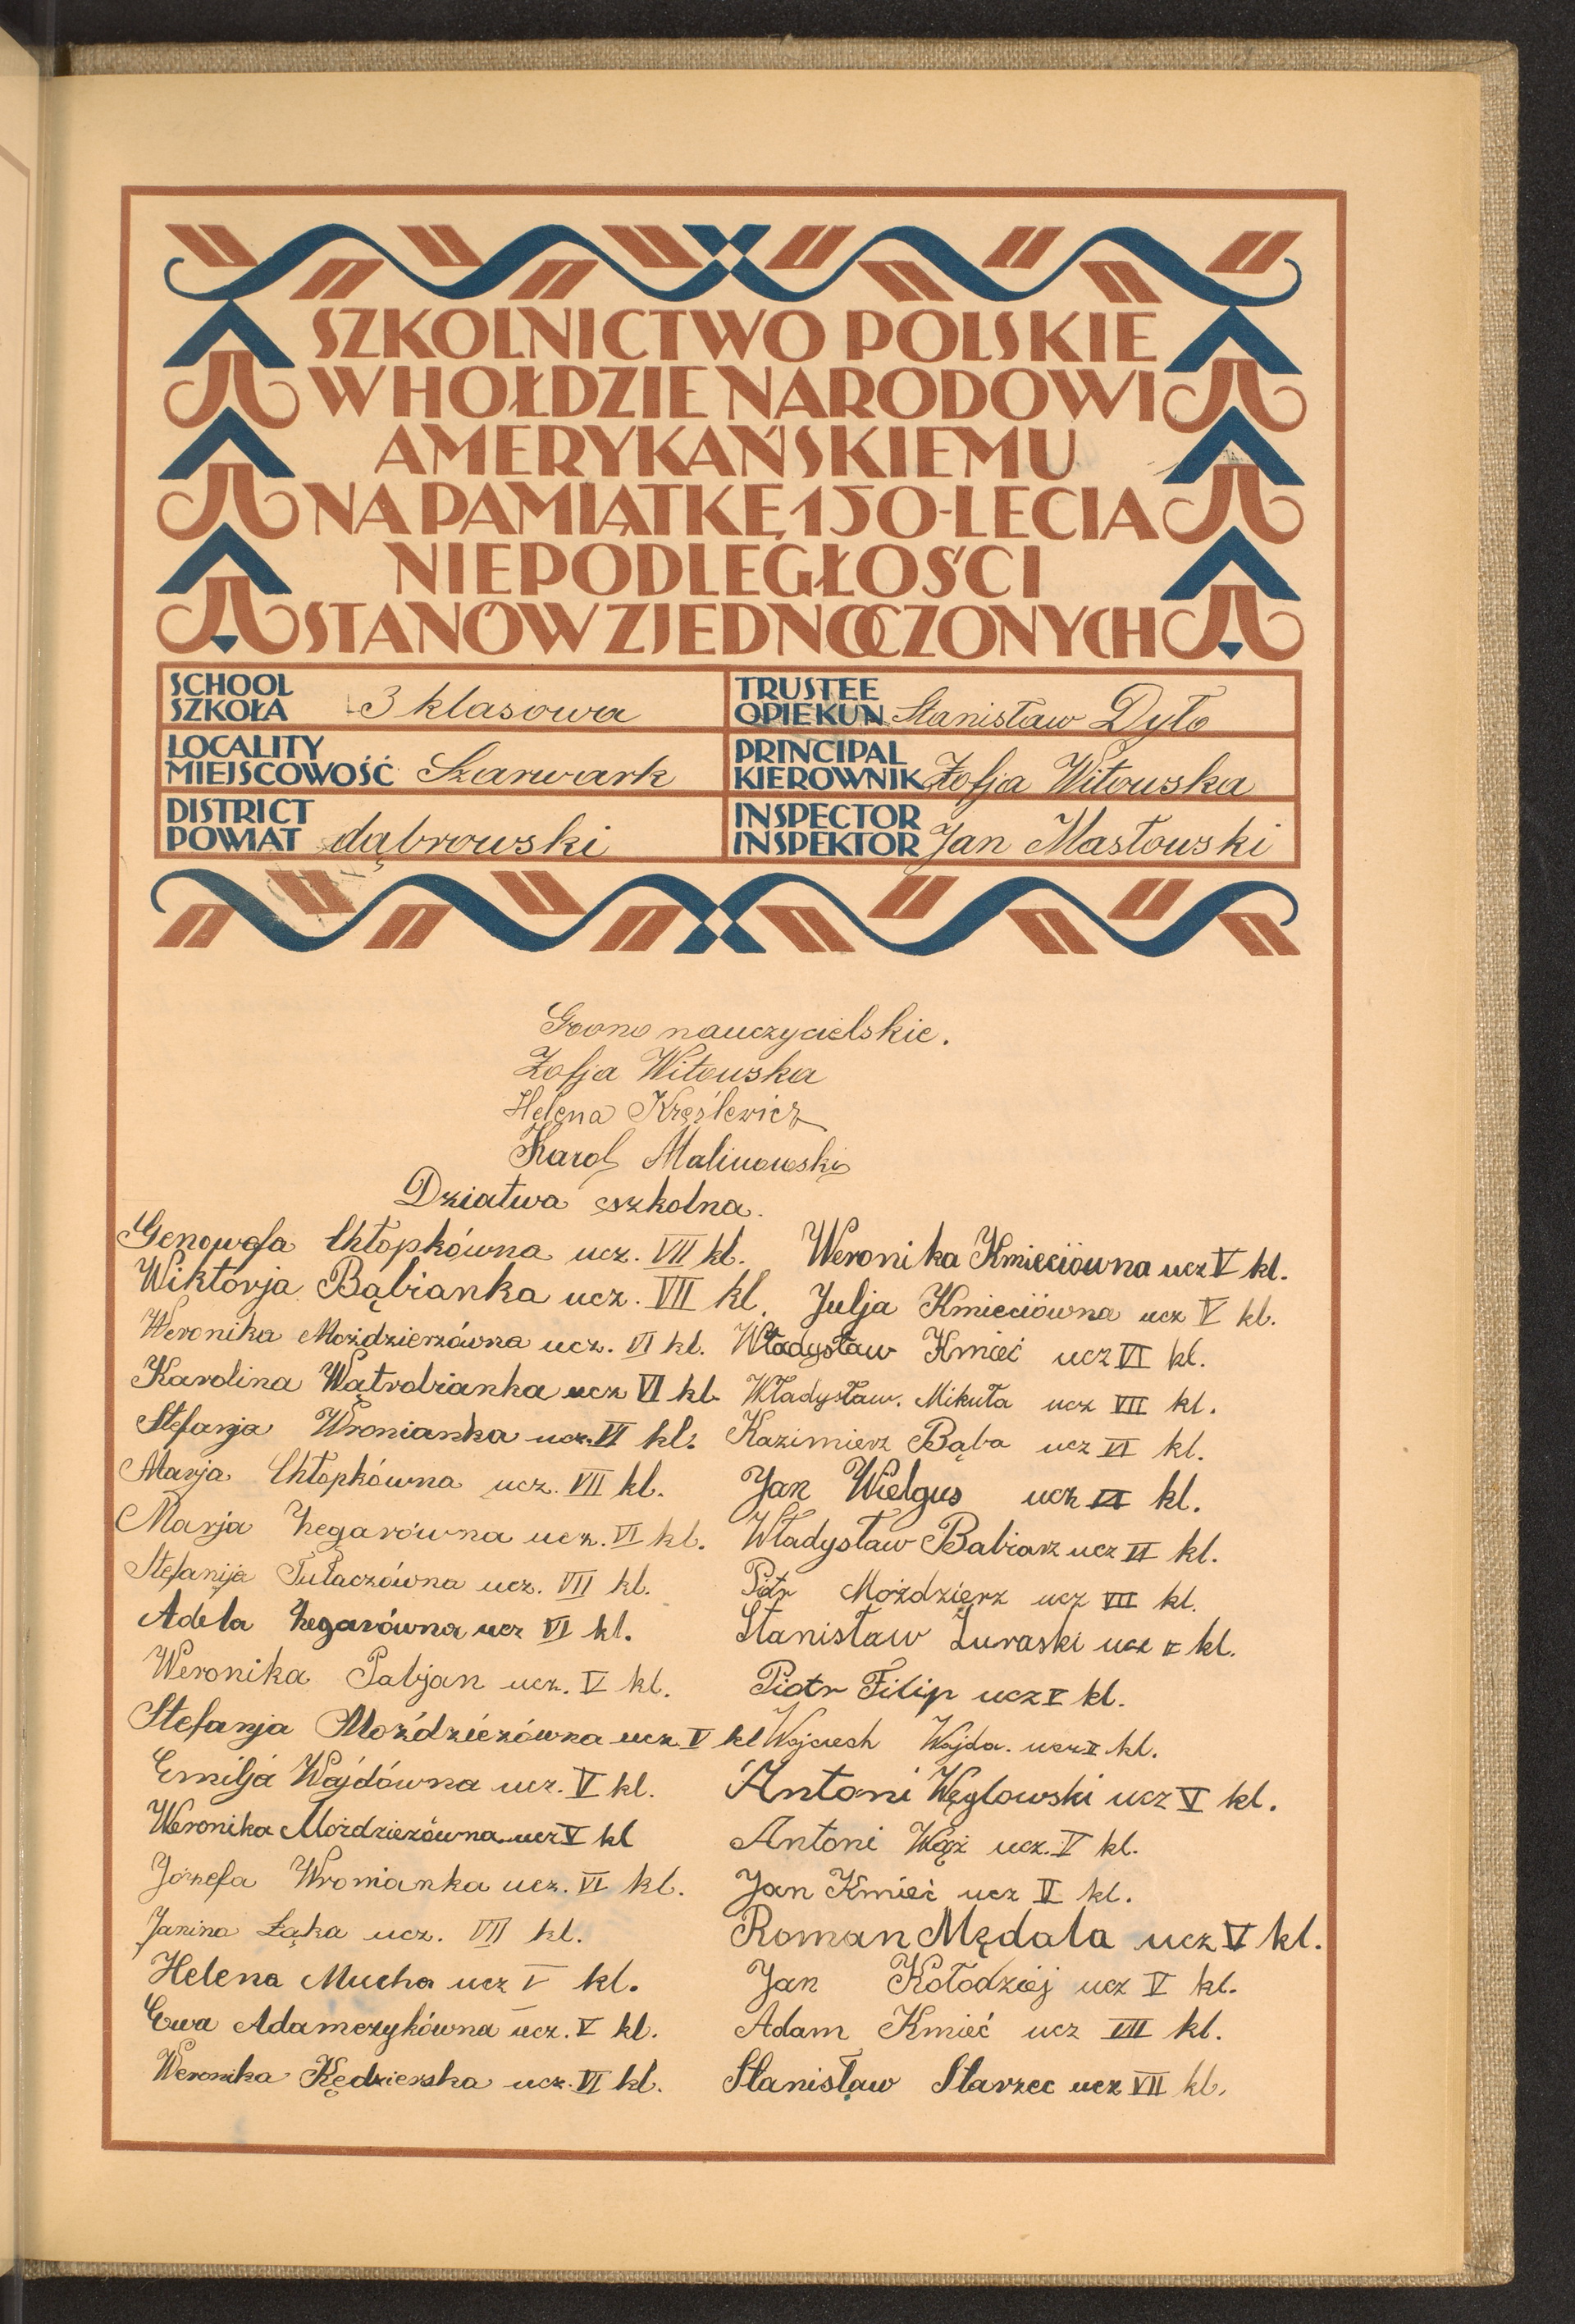 SZKOLNICTWO POLSKIE
W HOŁDZIE NARODOWI
AMERYKAŃSKIEMU
NA PAMIĄTKĘ 150-LECIA
NIEPODLEGŁOŚCI
STANÓW ZJEDNOCZONYCH
SCHOOL
SZKOŁA 3 klasowa
TRUSTEE
OPIEKUN Stanisław Dyło
LOCALITY
MIEJSCOWOŚĆ Szarwark
PRINCIPAL
KIEROWNIK Zofja Witowska
DISTRICT
POWIAT dąbrowski
INSPECTOR
INSPEKTOR Jan Masłowski
Grono nauczycielskie.
Zofja Witowska
Helena Kręślewicz
Karol Malinowski
Dziatwa szkolna.
Genowefa Chłopkówna ucz. VII kl.
Wiktorja Bąbianka ucz. VII kl.
Weronika Moździerzówna ucz. VI kl.
Karolina Wątrobianka ucz VI kl.
Stefanja Wronianka ucz. VI kl.
Marja Chłopkówna ucz. VII kl.
Marja Zegarówna ucz. VI kl.
Stefanija Tułaczówna ucz. VII kl.
Adela Zegarówna ucz VI kl.
Weronika Pabjan ucz. V kl.
Stefanja Moździeżówna ucz. V kl
Emilja Wajdówna ucz. V kl.
Weronika Moździeżówna ucz V kl
Józefa Wronianka ucz. VI kl.
Janina Łąka ucz. VII kl.
Helena Mucha ucz V kl.
Ewa Adamczykówna ucz. V kl.
Weronika Kędzierska ucz. VI kl.
Weronika Kmieciówna ucz V kl.
Julja Kmieciówna ucz V kl.
Władysław Kmieć ucz VI kl.
Władysław. Mikuła ucz VII kl.
Kazimierz Bąba ucz VI kl.
Jan Wielgus ucz VI kl.
Władysław Babiarz ucz VI kl.
Piotr Moździerz ucz VII kl.
Stanisław Żuraski ucz V kl.
Piotr Filip ucz V kl.
Wojciech Wajda. ucz V kl.
Antoni Węglowski ucz V kl.
Antoni Wąż ucz. V kl.
Jan Kmieć ucz V kl.
Roman Mędala ucz V kl.
Jan Kołodziej ucz V kl.
Adam Kmieć ucz VII kl.
Stanisław Starzec ucz VII kl.